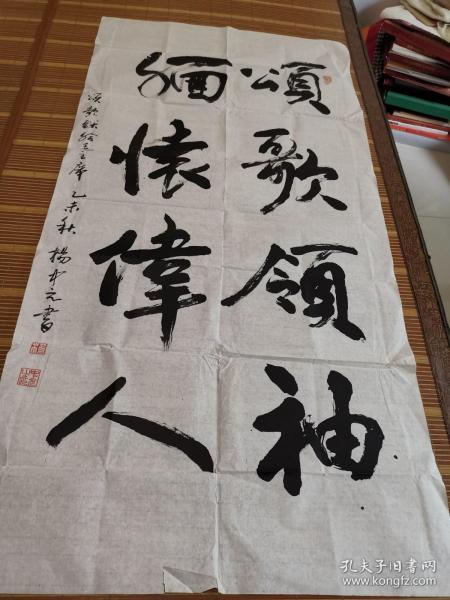 頌歌領袖
緬懷偉人
頌歌献给毛主席 乙未秋 楊中元書
孔夫子旧书网
www.kongfz.com